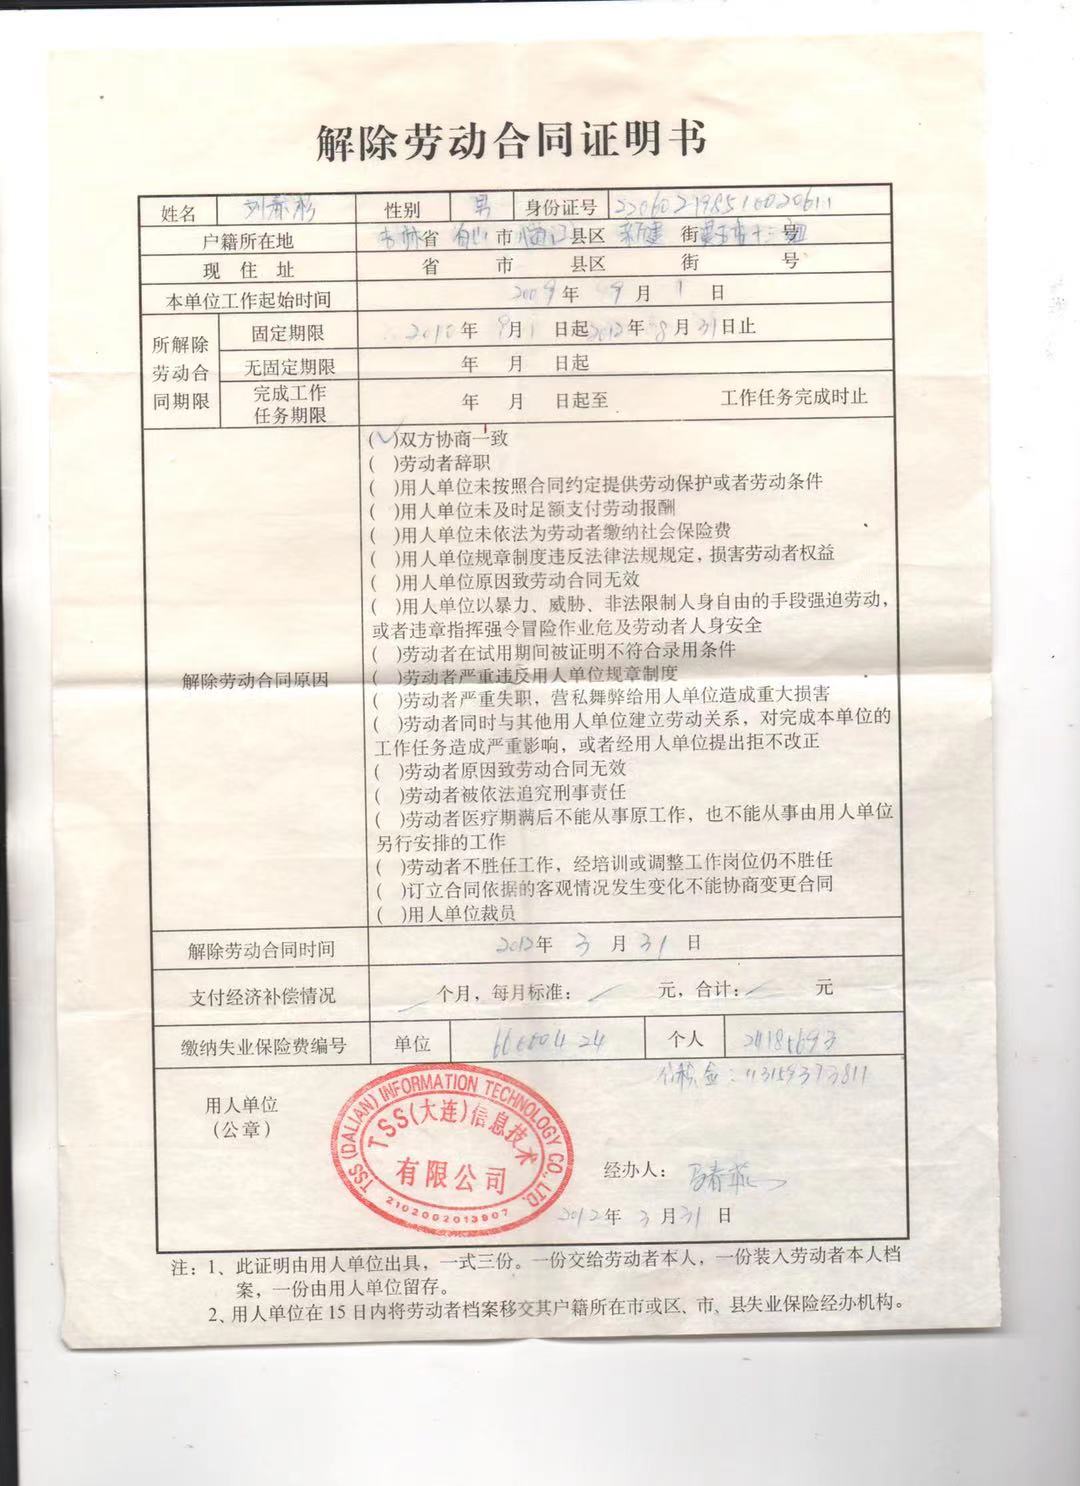 解除劳动合同证明书
姓名 刘 性别 男 身份证号
户籍所在地 吉林省 白山市 临江县区 新建街 号
现住址 省 市 县区 街 号
本单位工作起始时间 2009年 9月 1日
所解除劳动合同期限
固定期限 2010年 9月1日起2012年8月31日止
无固定期限 年 月 日起
完成工作任务期限 年 月 日起至 工作任务完成时止
解除劳动合同原因
(✓)双方协商一致
( )劳动者辞职
( )用人单位未按照合同约定提供劳动保护或者劳动条件
( )用人单位未及时足额支付劳动报酬
( )用人单位未依法为劳动者缴纳社会保险费
( )用人单位规章制度违反法律法规规定，损害劳动者权益
( )用人单位原因致劳动合同无效
( )用人单位以暴力、威胁、非法限制人身自由的手段强迫劳动，
或者违章指挥强令冒险作业危及劳动者人身安全
( )劳动者在试用期间被证明不符合录用条件
( )劳动者严重违反用人单位规章制度
( )劳动者严重失职，营私舞弊给用人单位造成重大损害
( )劳动者同时与其他用人单位建立劳动关系，对完成本单位的
工作任务造成严重影响，或者经用人单位提出拒不改正
( )劳动者原因致劳动合同无效
( )劳动者被依法追究刑事责任
( )劳动者医疗期满后不能从事原工作，也不能从事由用人单位
另行安排的工作
( )劳动者不胜任工作，经培训或调整工作岗位仍不胜任
( )订立合同依据的客观情况发生变化不能协商变更合同
( )用人单位裁员
解除劳动合同时间 2012年 3月 31日
支付经济补偿情况 / 个月，每月标准：/ 元，合计：/ 元
缴纳失业保险费编号 单位 个人 24185693
公积金：
用人单位
（公章）
TSS (DALIAN) INFORMATION TECHNOLOGY CO., LTD.
TSS(大连)信息技术
有限公司
2102002013907
经办人：马春
2012年 3月31日
注：1、此证明由用人单位出具，一式三份。一份交给劳动者本人，一份装入劳动者本人档
案，一份由用人单位留存。
2、用人单位在15日内将劳动者档案移交其户籍所在市或区、市、县失业保险经办机构。